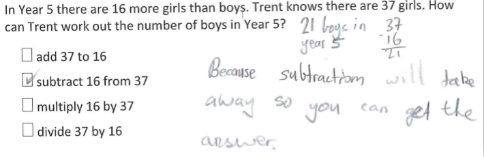 In Year 5 there are 16 more girls than boys. Trent knows there are 37 girls. How
can Trent work out the number of boys in Year 5? 21 boys in year 5
37
-16
21
add 37 to 16
subtract 16 from 37
multiply 16 by 37
divide 37 by 16
Because subtraction will take
away so you can get the
aeswer.